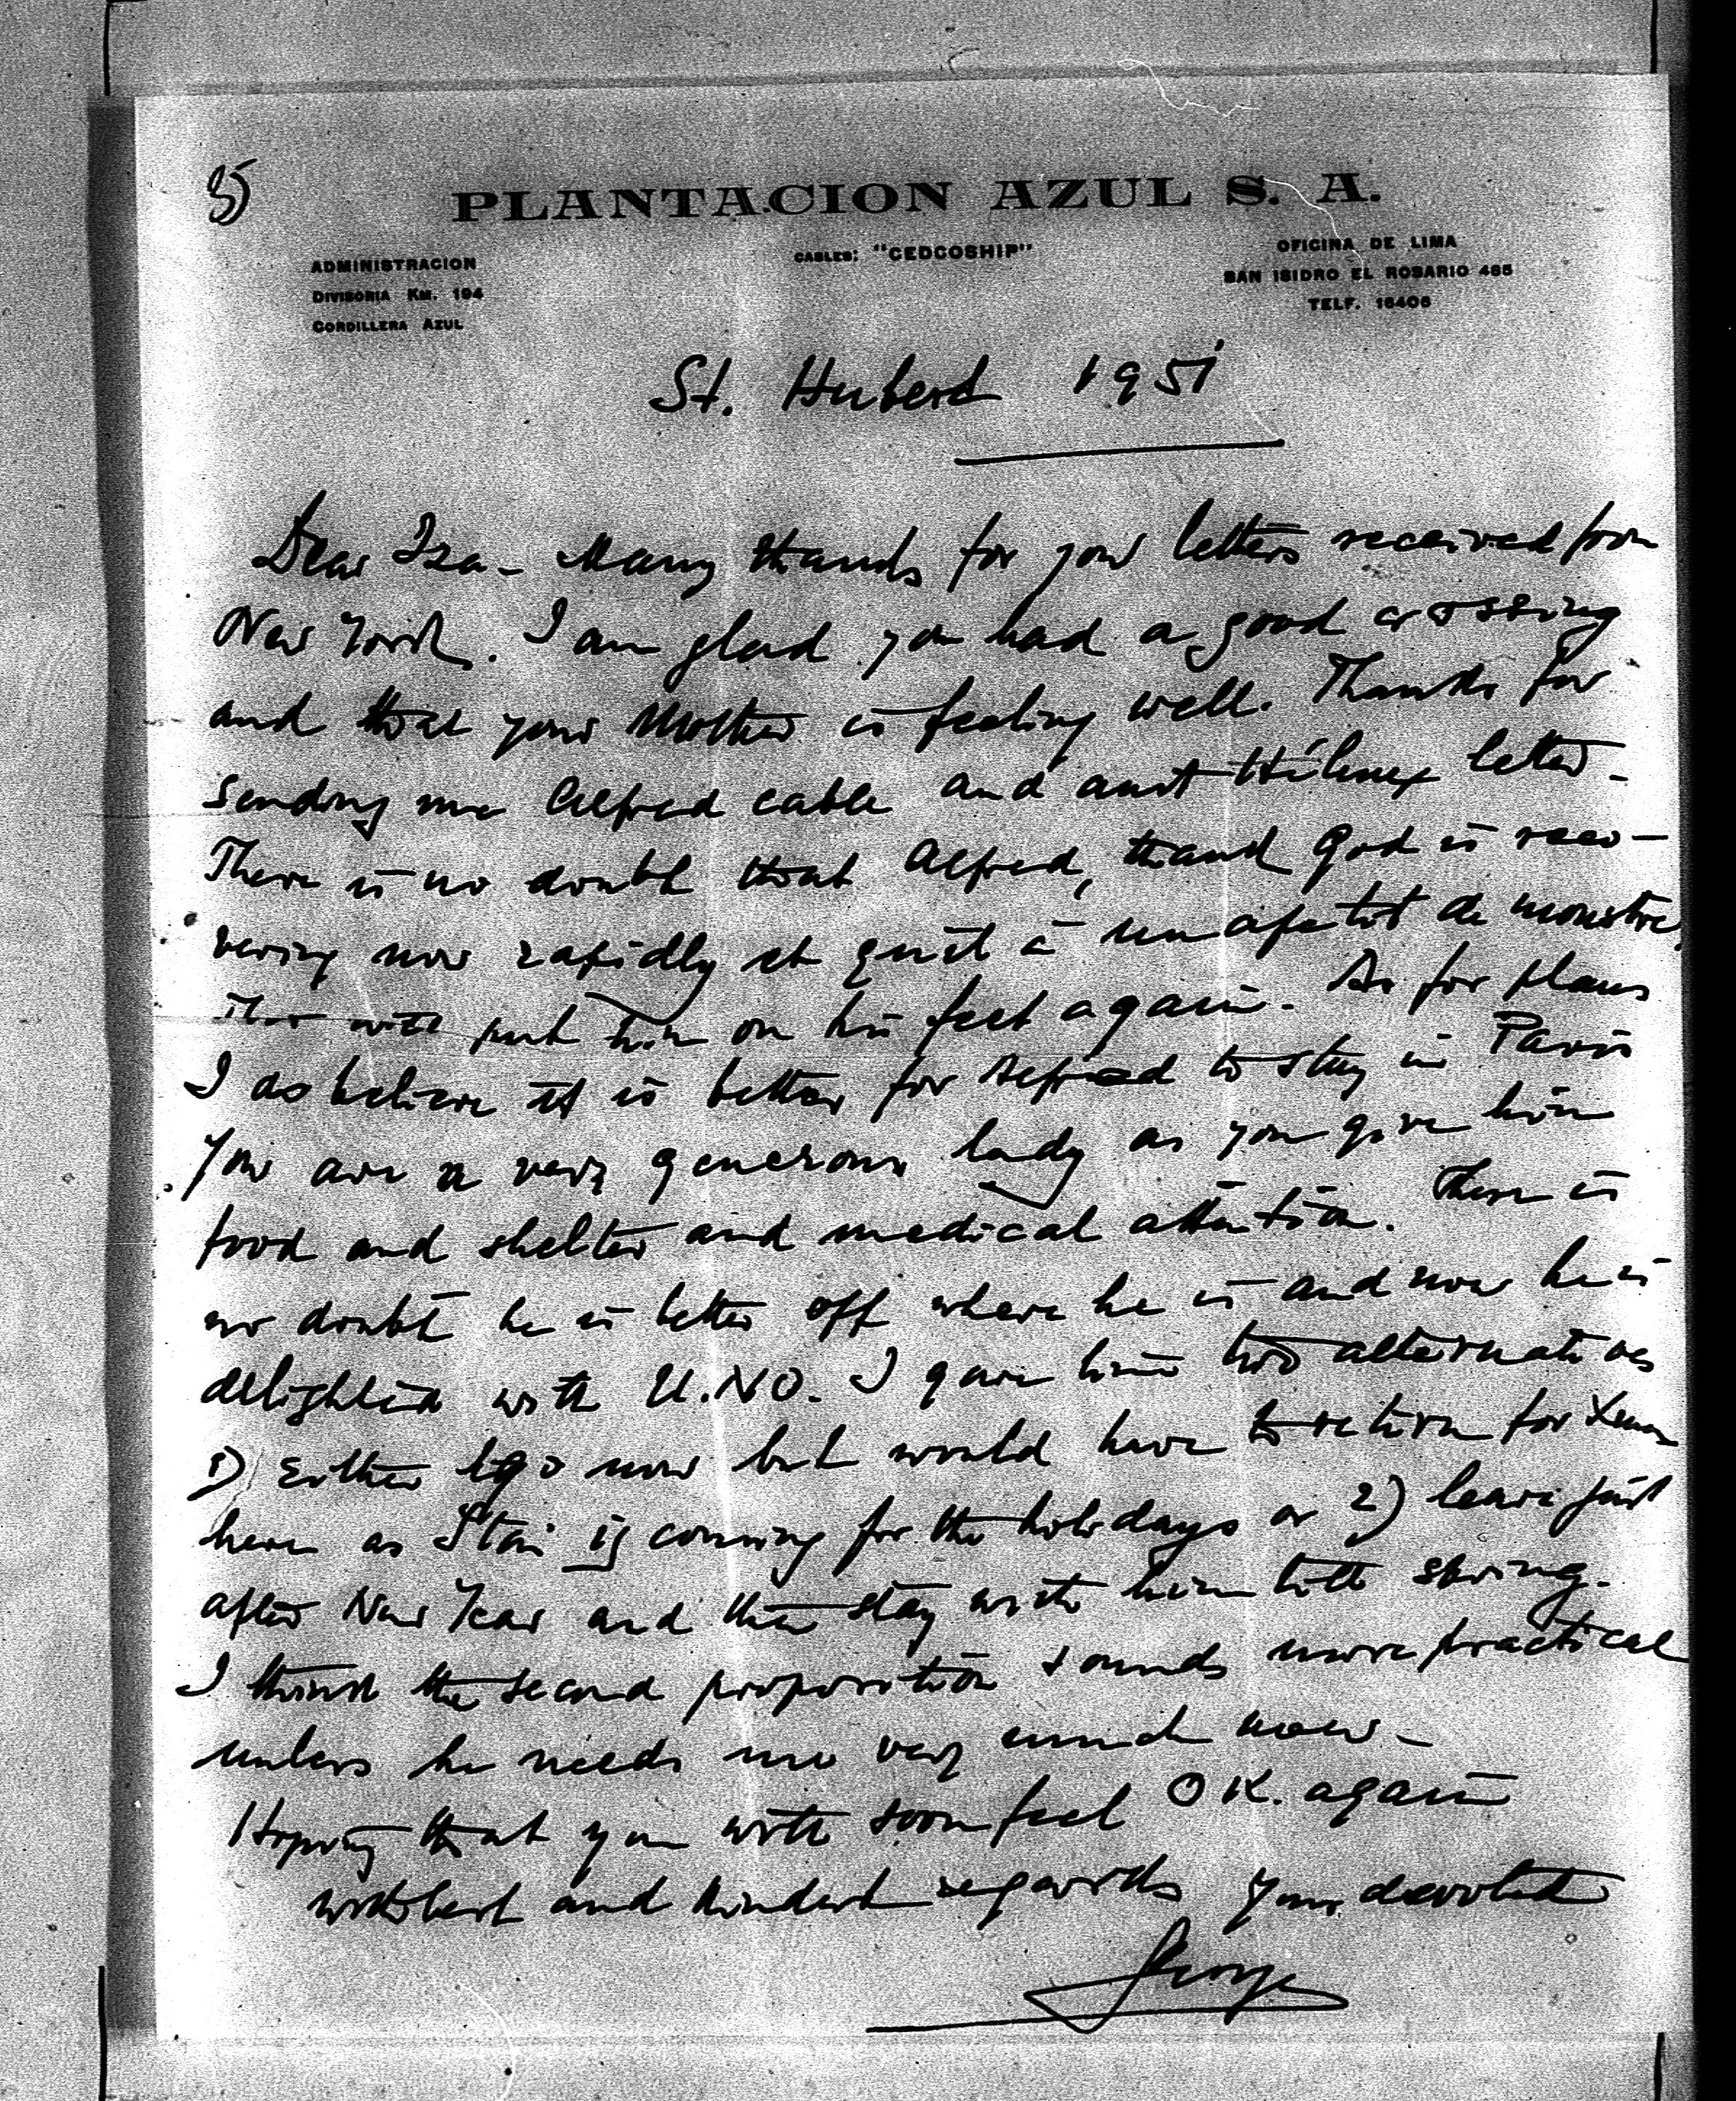 35
PLANTACION AZUL S. A.
CABLES: "CEDCOSHIP"
ADMINISTRACION
DIVISORIA KM. 194
CORDILLERA AZUL
OFICINA DE LIMA
SAN ISIDRO EL ROSARIO 485
TELF. 16406
St. Hubert 1951
Dear Iza - Many thanks for your letters received from
New York. I am glad you had a good crossing
and that your Mother is feeling well. Thanks for
sending me Alfred cable and aunt letter -
There is no doubt that Alfred, thank God is reco-
vering now rapidly et qu'il a un apetit de monstre,
That will put him on his feet again. As for plans
I do believe it is better for Alfred to stay in Paris
You are a very generous lady as you give him
food and shelter and medical attention. There is
no doubt he is better off where he is and now he is
delighted with U.NO. I gave him two alternatives
1) Either to go now but would have to return for Xmas
here as is coming for the holidays or 2) leave just
after New Year and then stay with him till spring.
I think the second proposition sounds more practical
unless he needs me very much now -
Hoping that you will soon feel OK. again
with best and kindest regards Your devoted
George